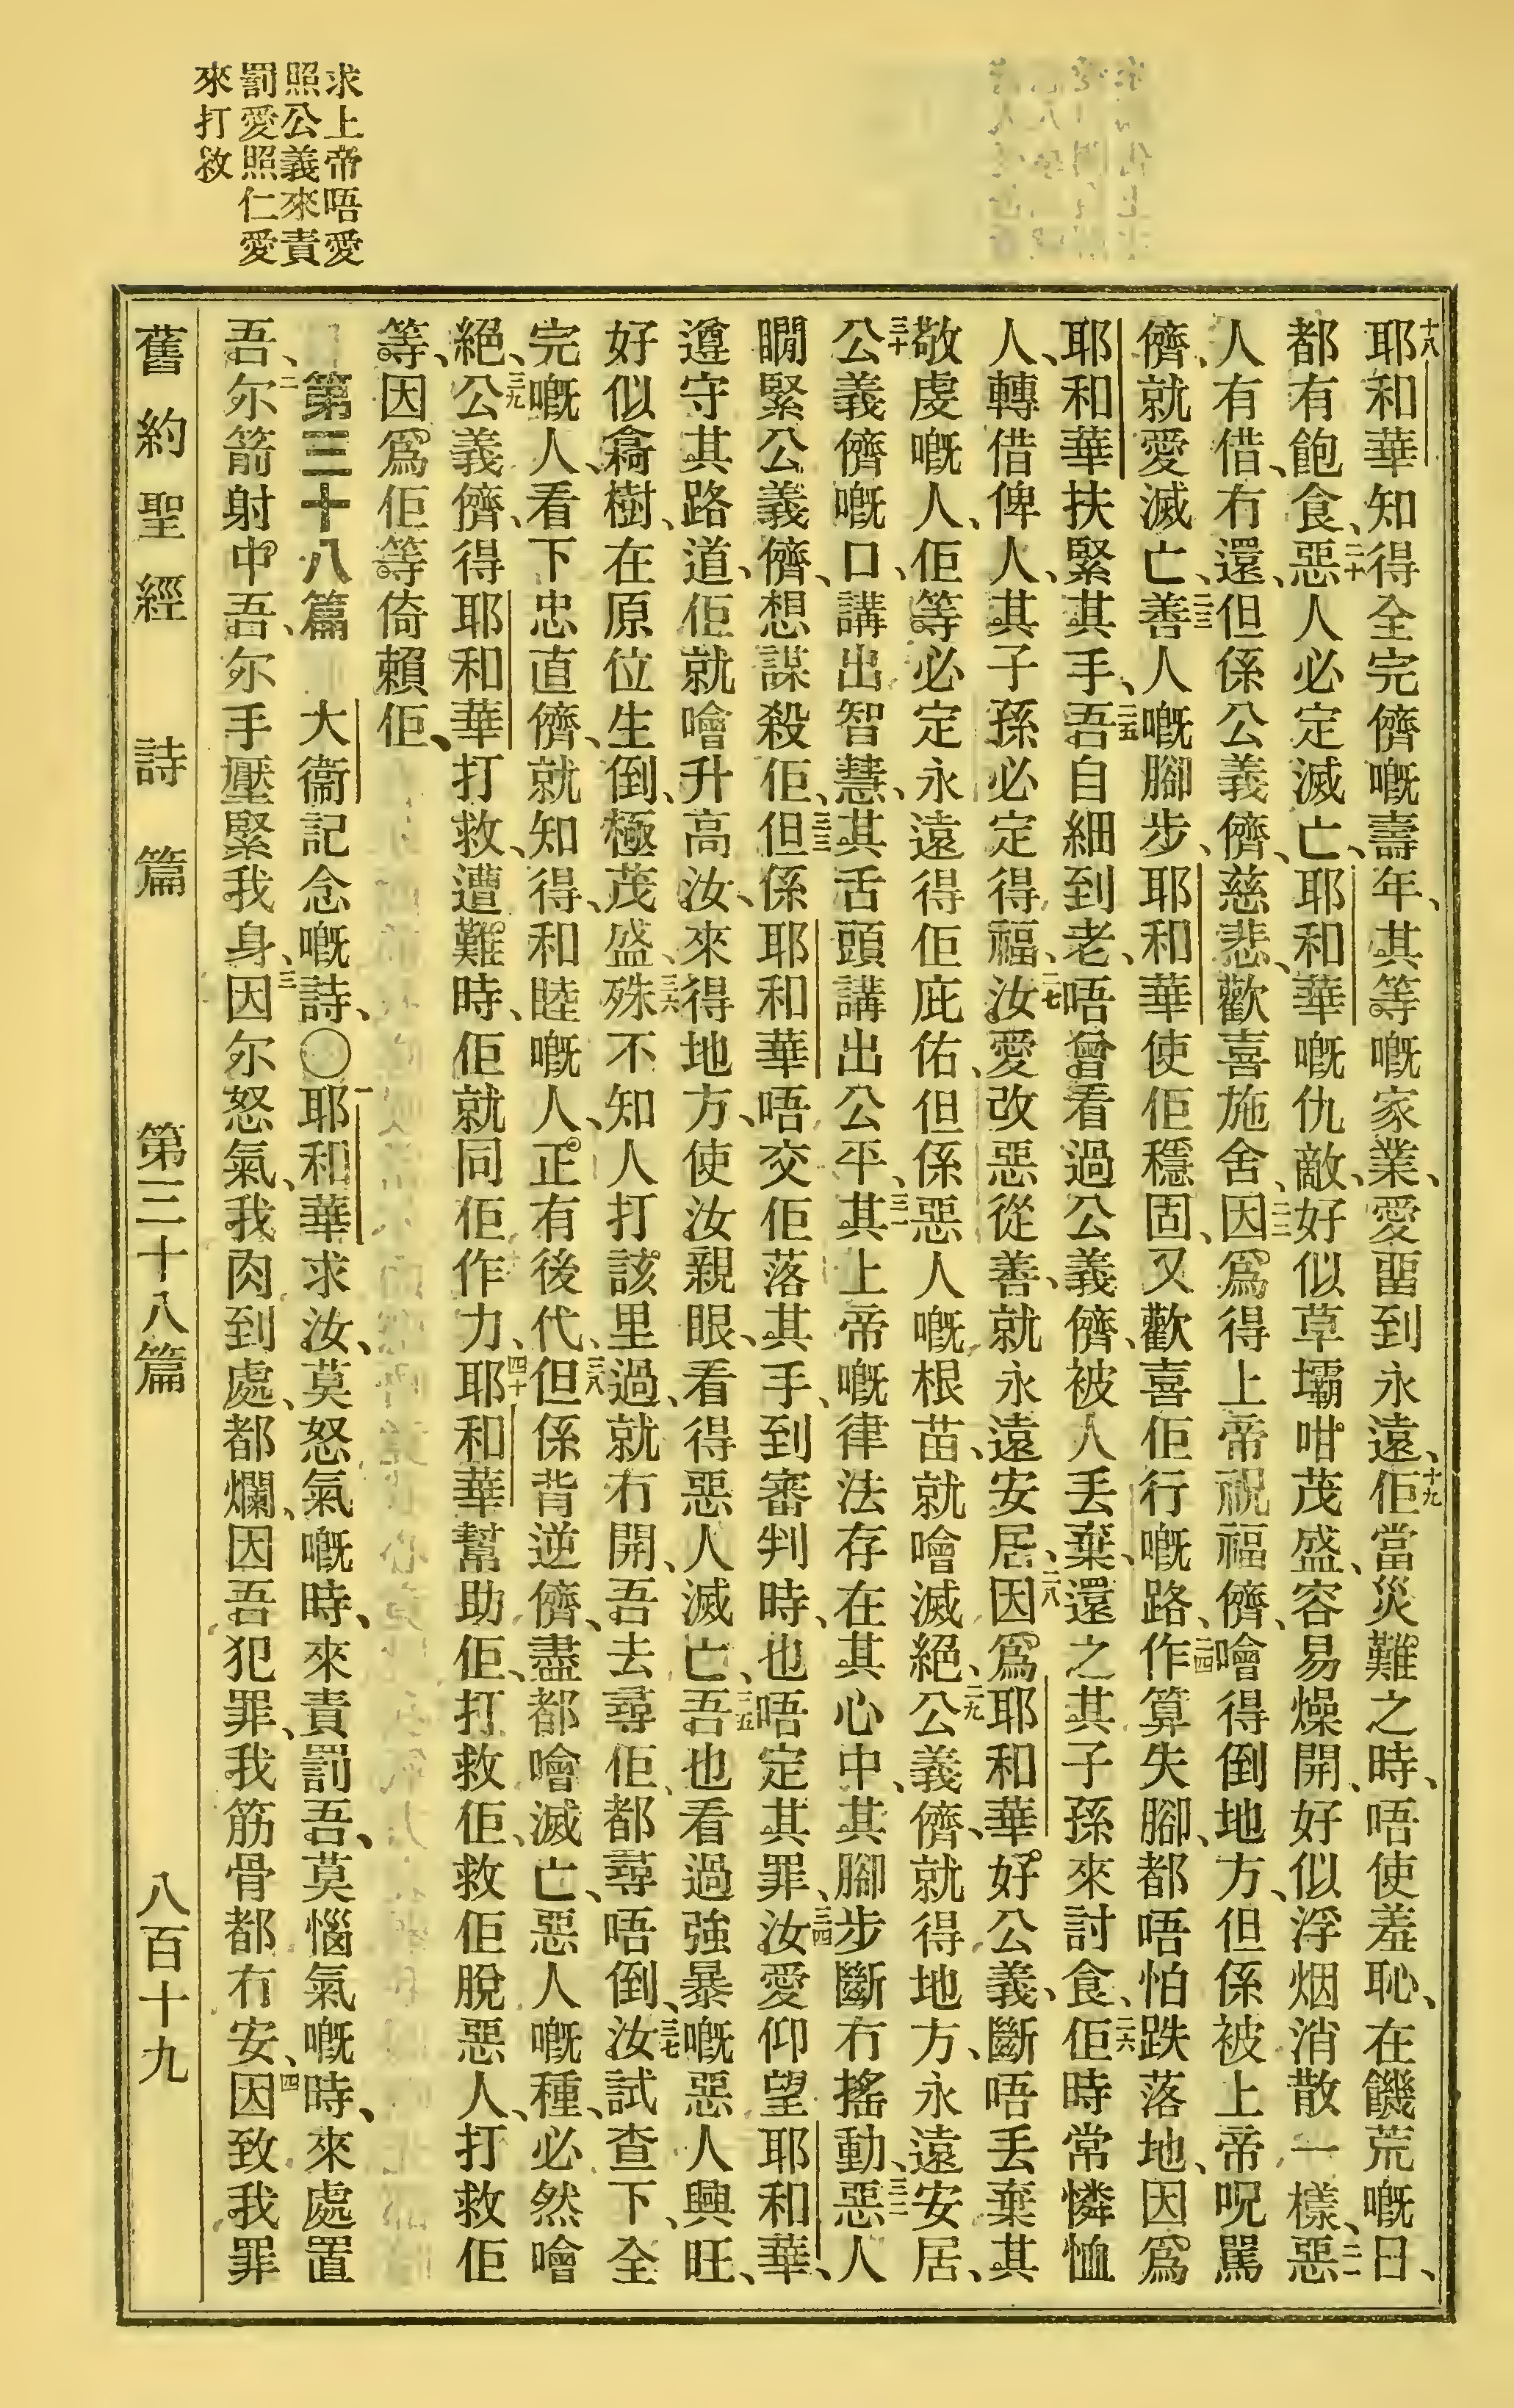 求上帝唔愛
照公義來責
罰愛照仁愛
來打救
十八耶和華知得全完儕嘅壽年、其等嘅家業、愛畱到永遠、十九佢當災難之時、唔使羞恥、在饑荒嘅日、
都有飽食、二十惡人必定滅亡、耶和華嘅仇敵、好似草壩咁茂盛、容易燥開、好似浮烟消散一樣、二一惡
人有借、冇還、但係公義儕、慈悲、歡喜施舍、二二因爲得上帝祝福儕、噲得倒地方、但係被上帝呪罵
儕、就愛滅亡、二三善人嘅腳步、耶和華使佢穩固、又歡喜佢行嘅路、二四作算失腳、都唔怕跌落地、因爲
耶和華扶緊其手、二五吾自細到老、唔曾看過公義儕、被人丟棄、還之其子孫來討食、二六佢時常憐恤
人、轉借俾人、其子孫必定得福、二七汝愛改惡從善、就永遠安居、二八因爲耶和華好公義、斷唔丟棄其
敬虔嘅人、佢等必定永遠得佢庇佑、但係惡人嘅根苗、就噲滅絕、二九公義儕、就得地方、永遠安居、
三十公義儕嘅口、講出智慧、其舌頭講出公平、三一其上帝嘅律法存在其心中、其腳步斷冇搖動、三二惡人
瞯緊公義儕、想謀殺佢、三三但係耶和華唔交佢落其手、到審判時、也唔定其罪、三四汝愛仰望耶和華、
遵守其路道、佢就噲升高汝、來得地方、使汝親眼、看得惡人滅亡、三五吾也看過強暴嘅惡人興旺、
好似樹、在原位生倒、極茂盛、三六殊不知人打該里過、就冇開、吾去尋佢、都尋唔倒、三七汝試查下、全
完嘅人、看下忠直儕、就知得、和睦嘅人、正有後代、三八但係背逆儕、盡都噲滅亡、惡人嘅種、必然噲
絕、三九公義儕、得耶和華打救、遭難時、佢就同佢作力、四十耶和華幫助佢、打救佢、救佢脫惡人、打救佢
等、因爲佢等倚賴佢、
第三十八篇　大衞記念嘅詩、〇一耶和華求汝、莫怒氣嘅時、來責罰吾、莫惱氣嘅時、來處置
吾、二尔箭射中吾、尔手壓緊我身、三因尔怒氣、我肉到處、都爛、因吾犯罪、我筋骨都冇安、四因致我罪
舊約聖經　詩篇　第三十八篇　八百十九